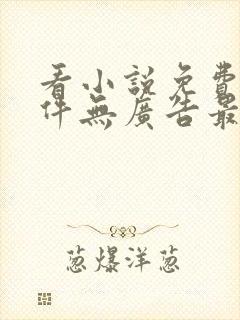 看小說免費
件無廣告最
葱爆洋葱